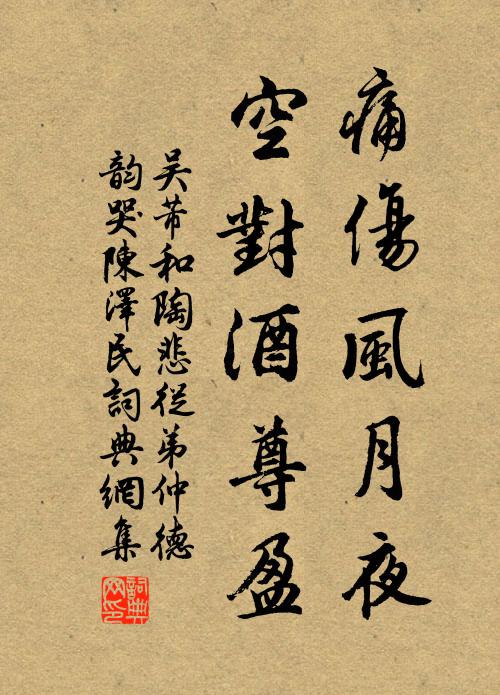 痛傷風月夜
空對酒尊盈
吴芾和陶悲從弟仲德
韵哭陳澤民詞典網集
詞典網印